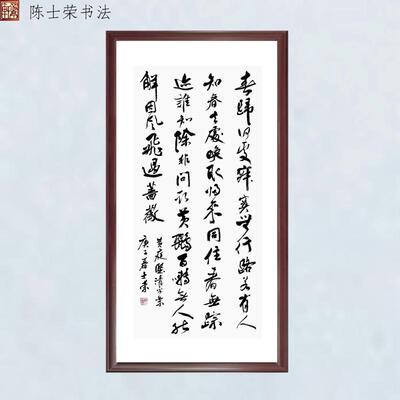 陈士荣书法
春歸何处寂寞無行路若有人
知春去處喚取归来同住春無踪
迹誰知除非問取黄鸝百囀無人能
解因風飛過薔薇
黄庭堅清平樂
庚子春士荣